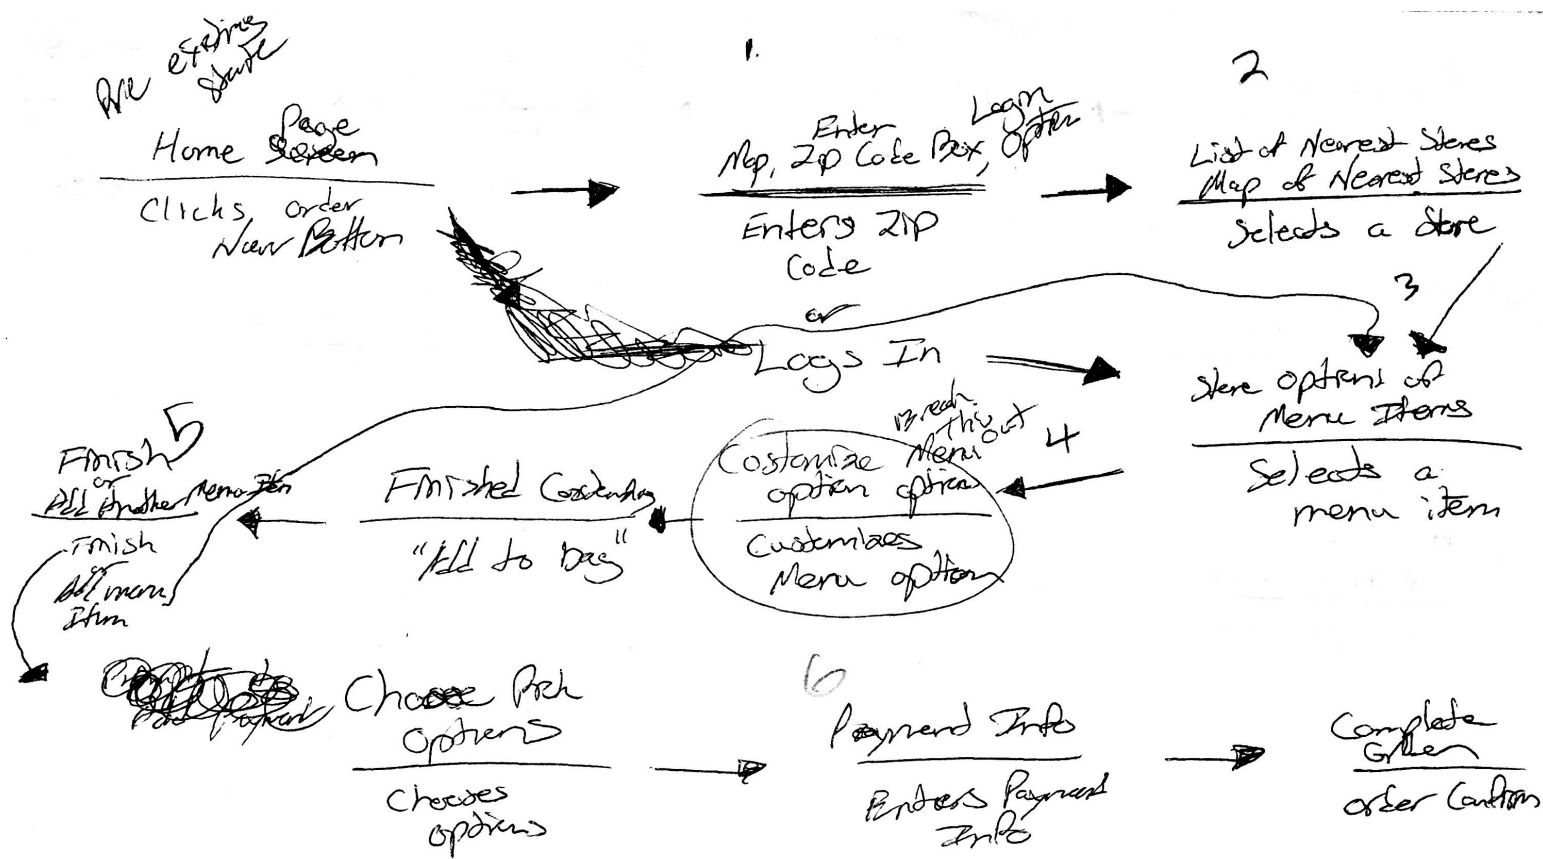 Pre existing
state
Home Page
Clicks order
Now Button
1.
Enter
Map, Zip Code Box, Login
Option
Enters ZIP
Code
or
Logs In
2
List of Nearest Stores
Map of Nearest Stores
Selects a Store
3
Store options of
Menu Items
Selects a
menu item
4
Break
this
out
Costomize Menu
option option
Customizes
Menu option
Finished
"Add to bag"
5
Finish
or
Add Another Menu Item
Finish
or
Add menu
Item
Choose
options
Chooses
options
6
Payment Info
Enters Payment
Info
Complete
order Confirm